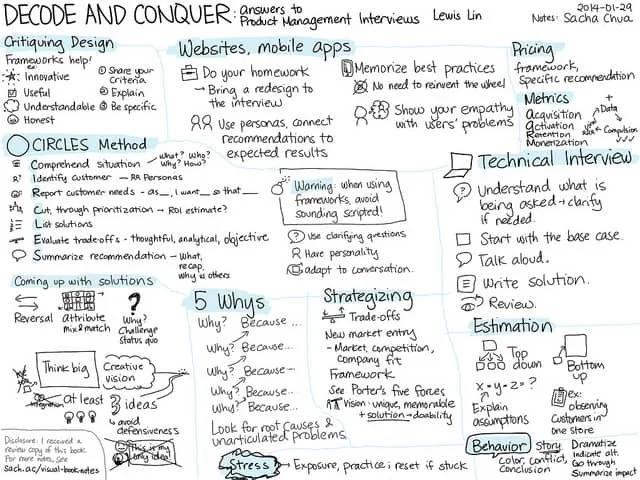 DECODE AND CONQUER: Answers to
Product Management Interviews Lewis Lin
2014-01-29
Notes: Sacha Chua
Critiquing Design
Frameworks help!
ex:
Innovative
Useful
Understandable
Honest
① Share your
criteria
② Explain
③ Be specific
Websites, mobile apps
Do your homework
→ Bring a redesign to
the interview
Use personas, connect
recommendations to
expected results
Memorize best practices
No need to reinvent the wheel
Show your empathy
with users' problems
Pricing
framework,
specific recommendation
Metrics
Acquisition
Activation
Retention
Monetization
+
Data
Risk
Compulsion
CIRCLES Method
Comprehend situation
What? Who?
Why? How?
Identify customer → Personas
Report customer needs - as__, I want__ so that__
Cut, through prioritization → ROI estimate?
List solutions
Evaluate trade-offs - thoughtful, analytical, objective
Summarize recommendation - What,
recap,
why vs others
Warning: when using
frameworks, avoid
sounding scripted!
Use clarifying questions
Have personality
adapt to conversation.
Technical Interview
Understand what is
being asked → clarify
if needed.
Start with the base case.
Talk aloud.
Write solution.
Review.
Coming up with solutions
Reversal
attribute
mix & match
?
Why?
Challenge
status quo
Think big
Creative
vision
integration
at least
3 ideas
↳ avoid
defensiveness
This is my
only idea!
Disclosure: I received a
review copy of this book.
For more notes, see
sach.ac/visual-book-notes
5 Whys
Why? Because ...
Why? Because...
Why? Because -
Why? Because..
Why? Because...
Look for root causes &
unarticulated problems
Strategizing
Trade-offs
New market entry
- Market, competition,
company fit
Framework
See Porter's five forces
Vision: unique, memorable
+ solution → doability
Stress
→ Exposure, practice; reset if stuck
Estimation
Top
down
Bottom
up
x - y - z = ?
Explain
assumptions
ex:
observing
customers in
one store
Behavior
Story
Color, conflict,
conclusion
Dramatize
Indicate alt.
Go through
Summarize impact